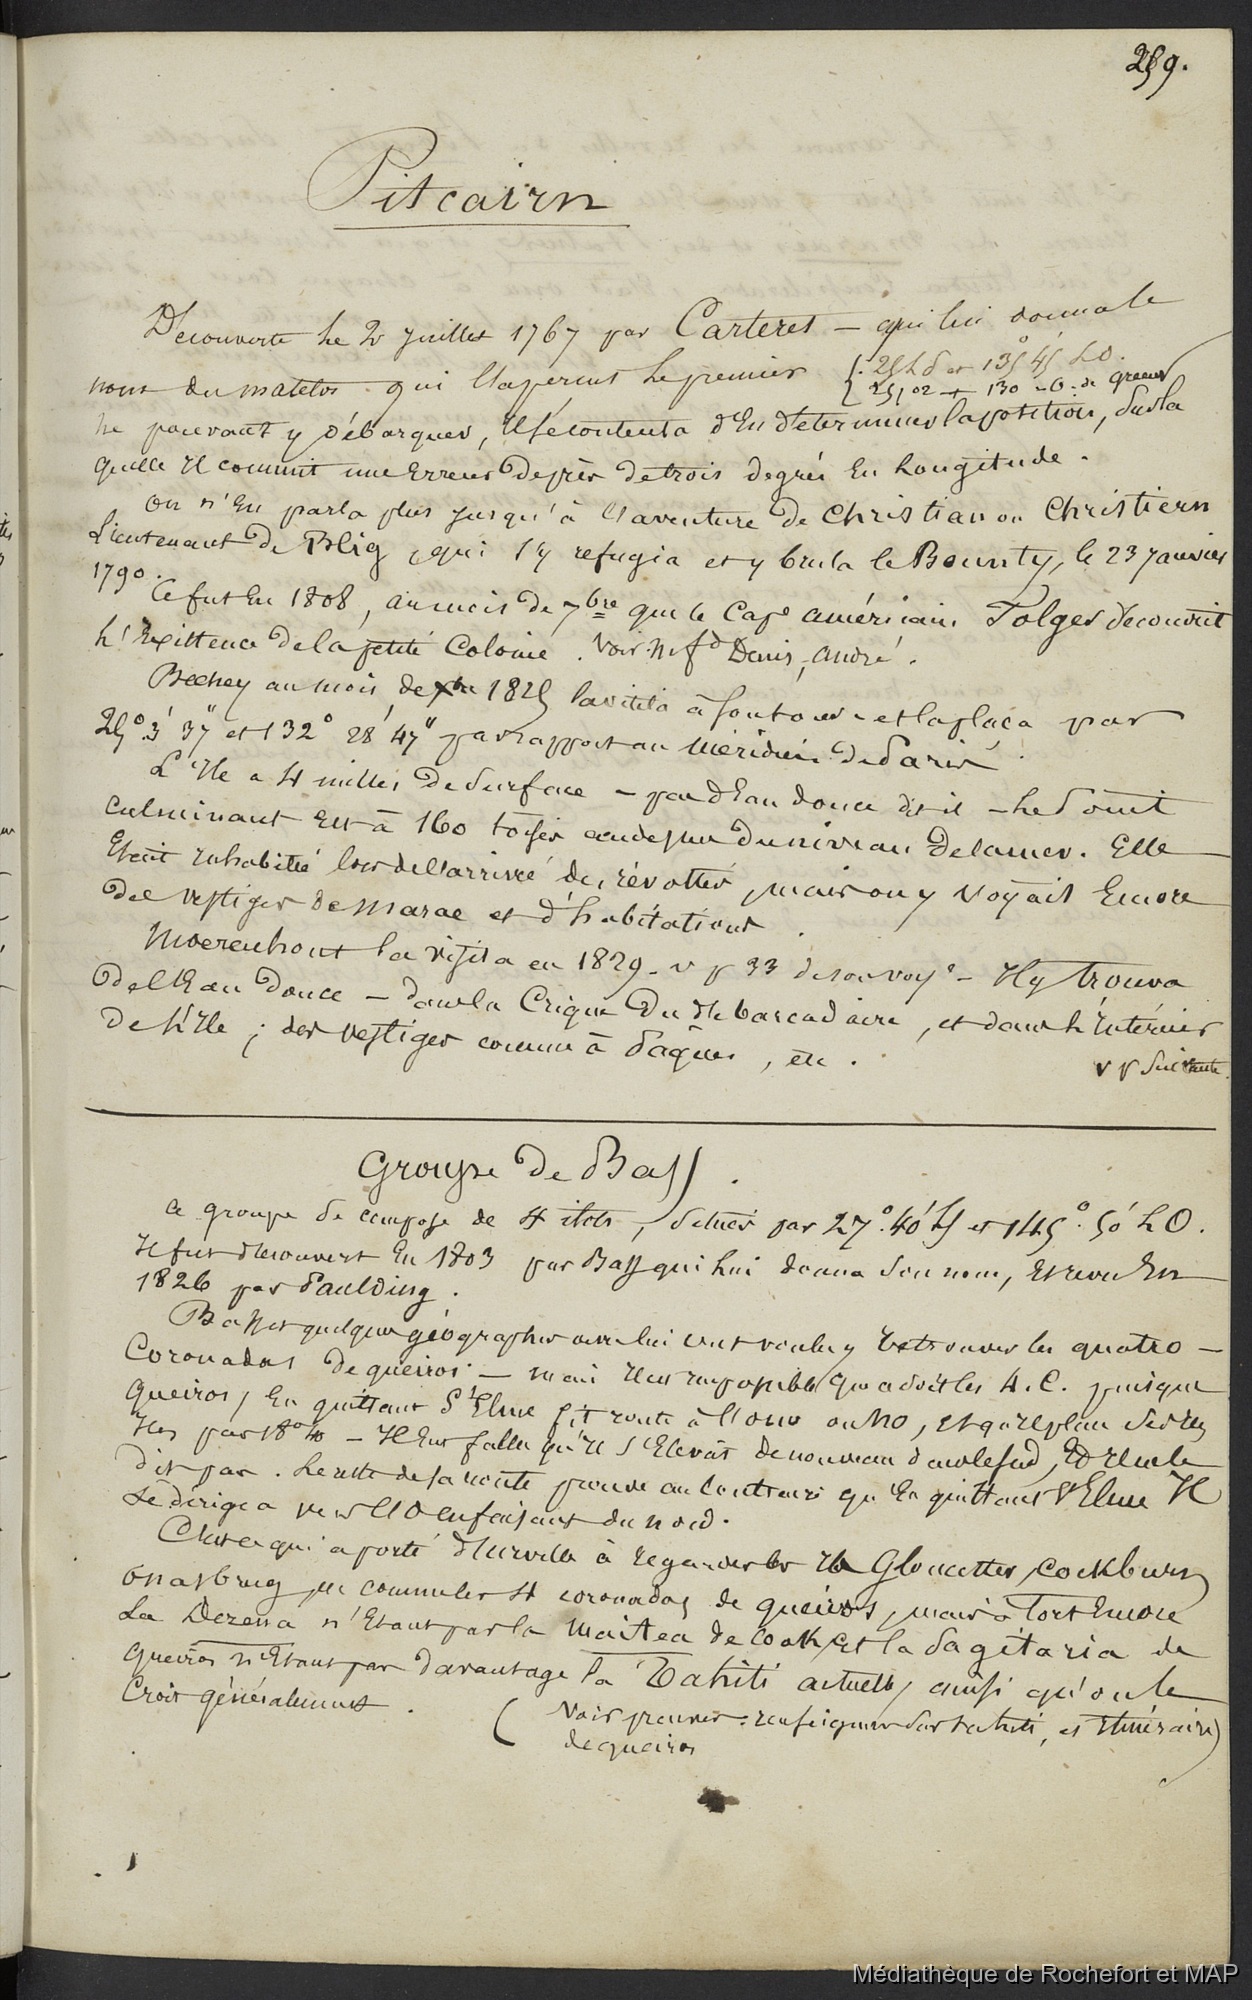 259.
Pitcairn
Découverte le 2 Juillet 1767 par Carteret — qui lui donna le
nom du matelot qui l'aperçut le premier { 25 L S et 135° 45' L O.
{ 25, 02 et 130 - O. de Greenw
Ne pouvant y débarquer, Il se contenta d'En déterminer la position, sur la
quelle Il commit une Erreur de près de trois degrés En Longitude.
On n'En parla plus jusqu'à l'aventure de Christian ou Christiern
Lieutenant de Blig, qui s'y refugia et y brula le Bounty, le 23 Janvier
1790.
Ce fut En 1808, au mois de 7bre que le Cape américain Folger découvrit
L'Existence de la petite Colonie. Voir Denis, André.
Bechey au mois de Xbre 1825 la visita à son tour - et la plaça par
25° 3' 37" et 132° 28' 47" par rapport au Méridien de Paris.
L'Ile a 4 milles de surface — peu d'Eau douce dit-il — Le Somt
culminant Est à 160 toises au dessus du niveau de la mer. Elle
Etait inhabitée lors de l'arrivée des révoltés, mais on y voyait Encore
des vestiges de marae et d'habitations.
Moerenhout la visita en 1829 - v p 33 de son voye - Il y trouva
de l'Eau Douce — dans la Crique du débarcadaire, et dans L'Intérieur
de L'Ile ; des vestiges comme à Pâques, etc.
v p suivante.
Groupe de Bass.
Ce groupe se compose de 4 ilots, situés par 27°. 40' L S et 145°. 50' L O.
Il fut découvert En 1803 par Bass qui lui donna son nom, Et revu En
1826 par Paulding.
Bass et quelques géographes avec lui ont voulu y retrouver les quatro
Coronadas de queiros — mais Il est impossible que ce soit les 4. C. puisque
Queiros, En quittant St Elme fit route à l'ouo ou NO, et qu'Il place ses
Iles par 18° 40 — Il Eut fallu qu'Il s'Elevât de nouveau dans le sud, Et Il ne le
dit pas. Le reste de sa route prouve au Contraire qu'En quittant St Elme Il
se dirigea vers l'O en faisant du nord.
C'est ce qui a porté d'Urville à regarder les Iles Glocester, Cockburn
Osnabrug, etc comme les 4 coronadas de queiros, mais à Tort Encore
La Dezena n'Etant pas la Maitea de Cook, Et la Sagitaria de
Queiros n'Etant pas davantage la Tahiti actuelle, ainsi qu'on le
Croit généralement.
( Voir preuves : renseignemens sur tahiti, et Itinéraire )
de queiros
Médiathèque de Rochefort et MAP